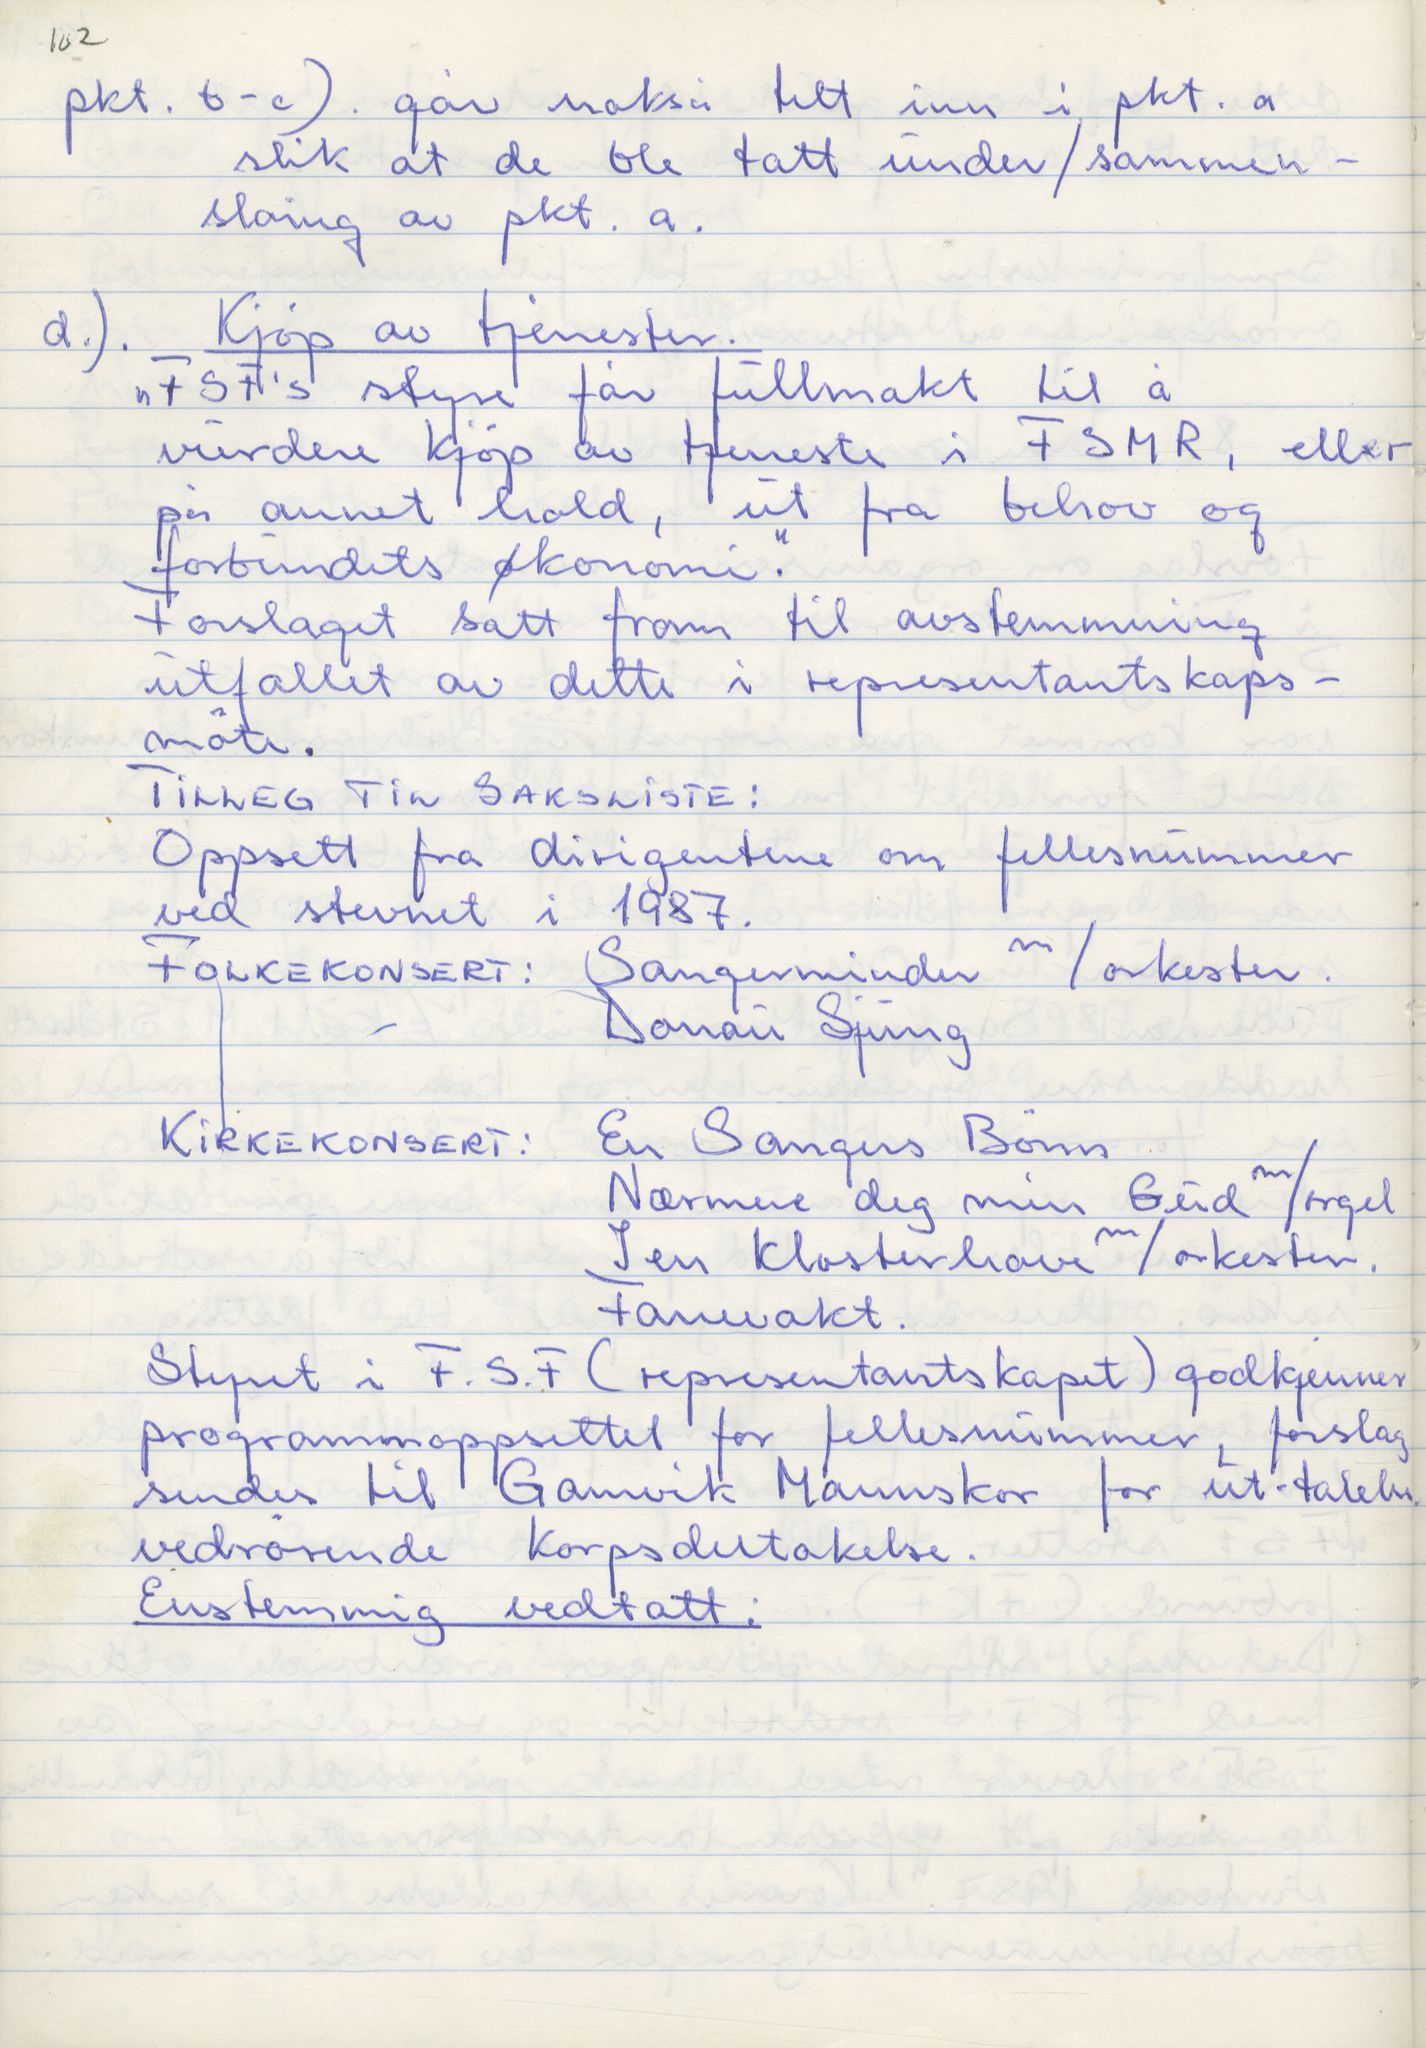 102
pkt. b-c). går nokså tett inn i pkt. a
slik at de ble tatt under/sammen-
slåing av pkt. a.
d.). Kjöp av tjenester.
"FSF's styre får fullmakt til å
vurdere kjöp av tjeneste i FSMR, eller
på annet hold, ut fra behov og
forbundets økonomi."
Forslaget satt fram til avstemmning
utfallet av dette i representantskaps-
möte.
TILLEG TIL SAKSLISTE:
Oppsett fra dirigentene om fellesnummer
ved stevnet i 1987.
FOLKEKONSERT: Sangerminder m/orkester.
- Donau Sjung
KIRKEKONSERT: En Sangers Bönn
Nærmere deg min Gud m/orgel
I en Klosterhave m/orkester.
Fanevakt.
Styret i F.S.F (representantskapet) godkjenner
programmoppsettet for fellesnummer, forslag
sendes til Gamvik Mannskor for ut-talelse.
vedrörende korpsdeltakelse.
Enstemmig vedtatt: